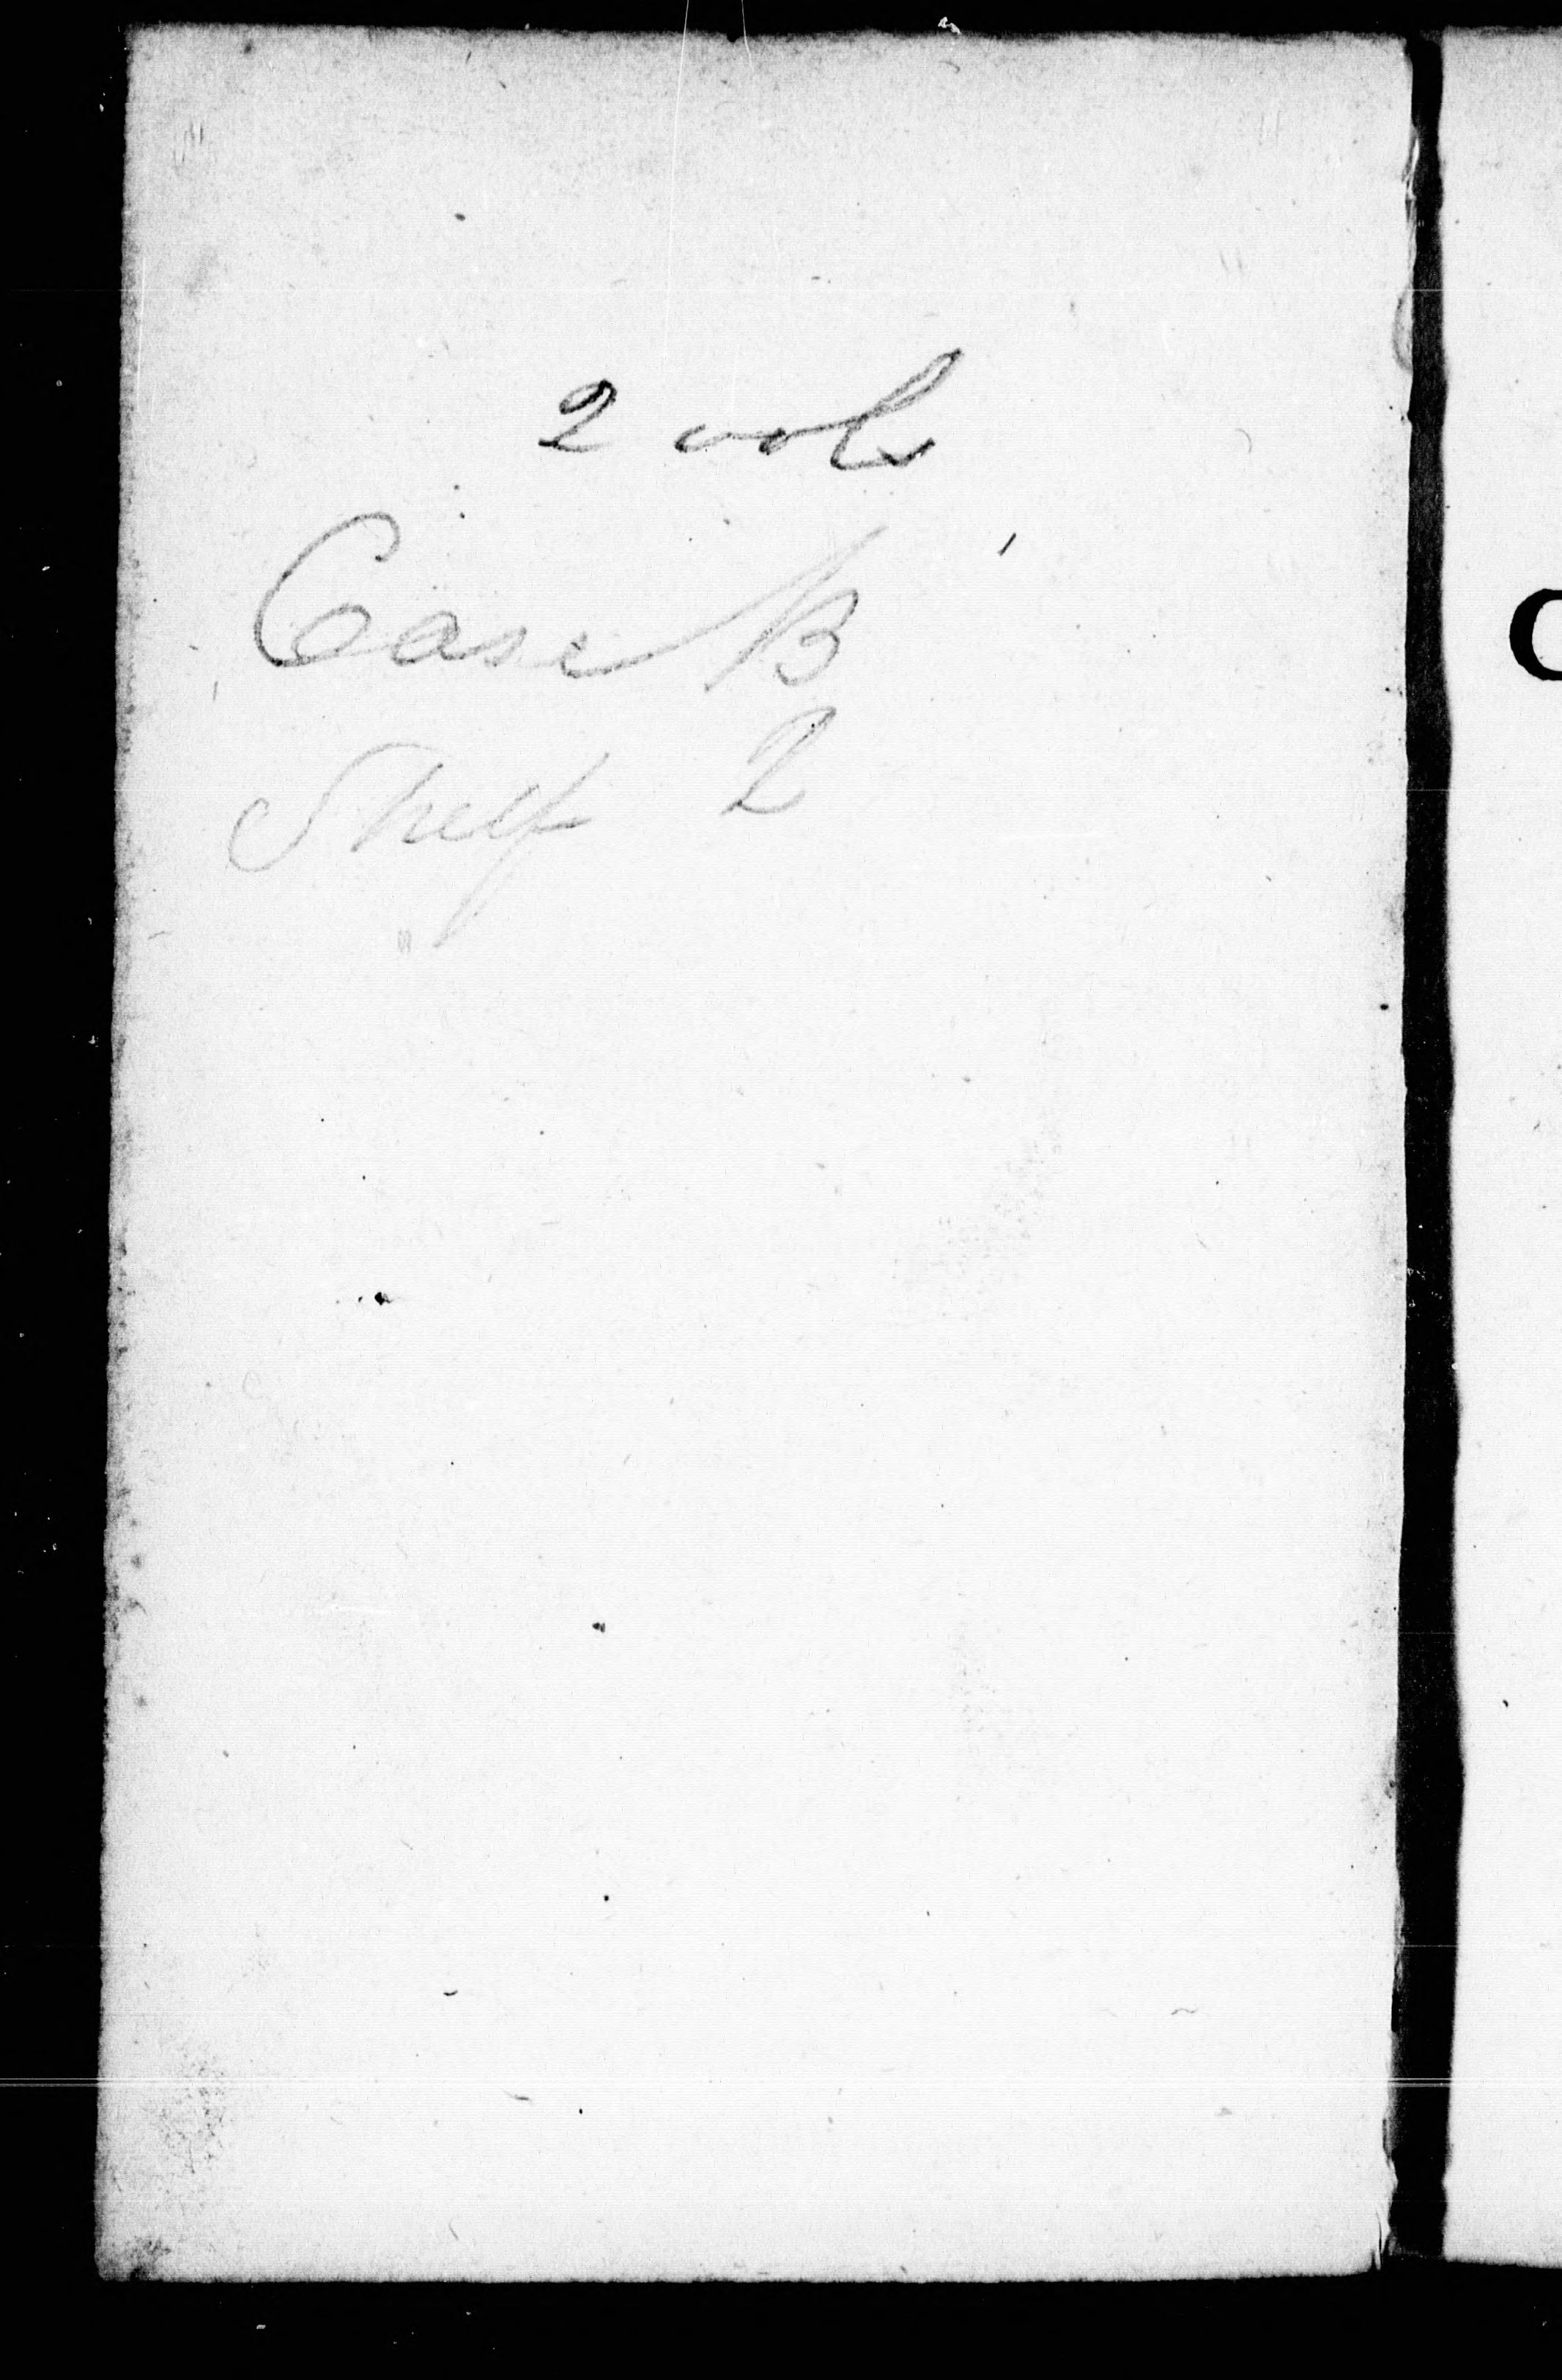 2 vols
Case B
Shelf 2
C